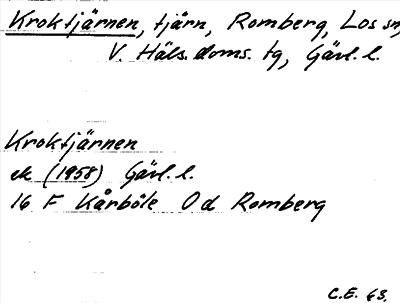 Kroktjärnen, tjärn, Romberg, Los sn,
V. Häls. doms. tg, Gävl. l.
Kroktjärnen
ek (1958) Gävl. l.
16 F Kårböle O d Romberg
C.E. 63.